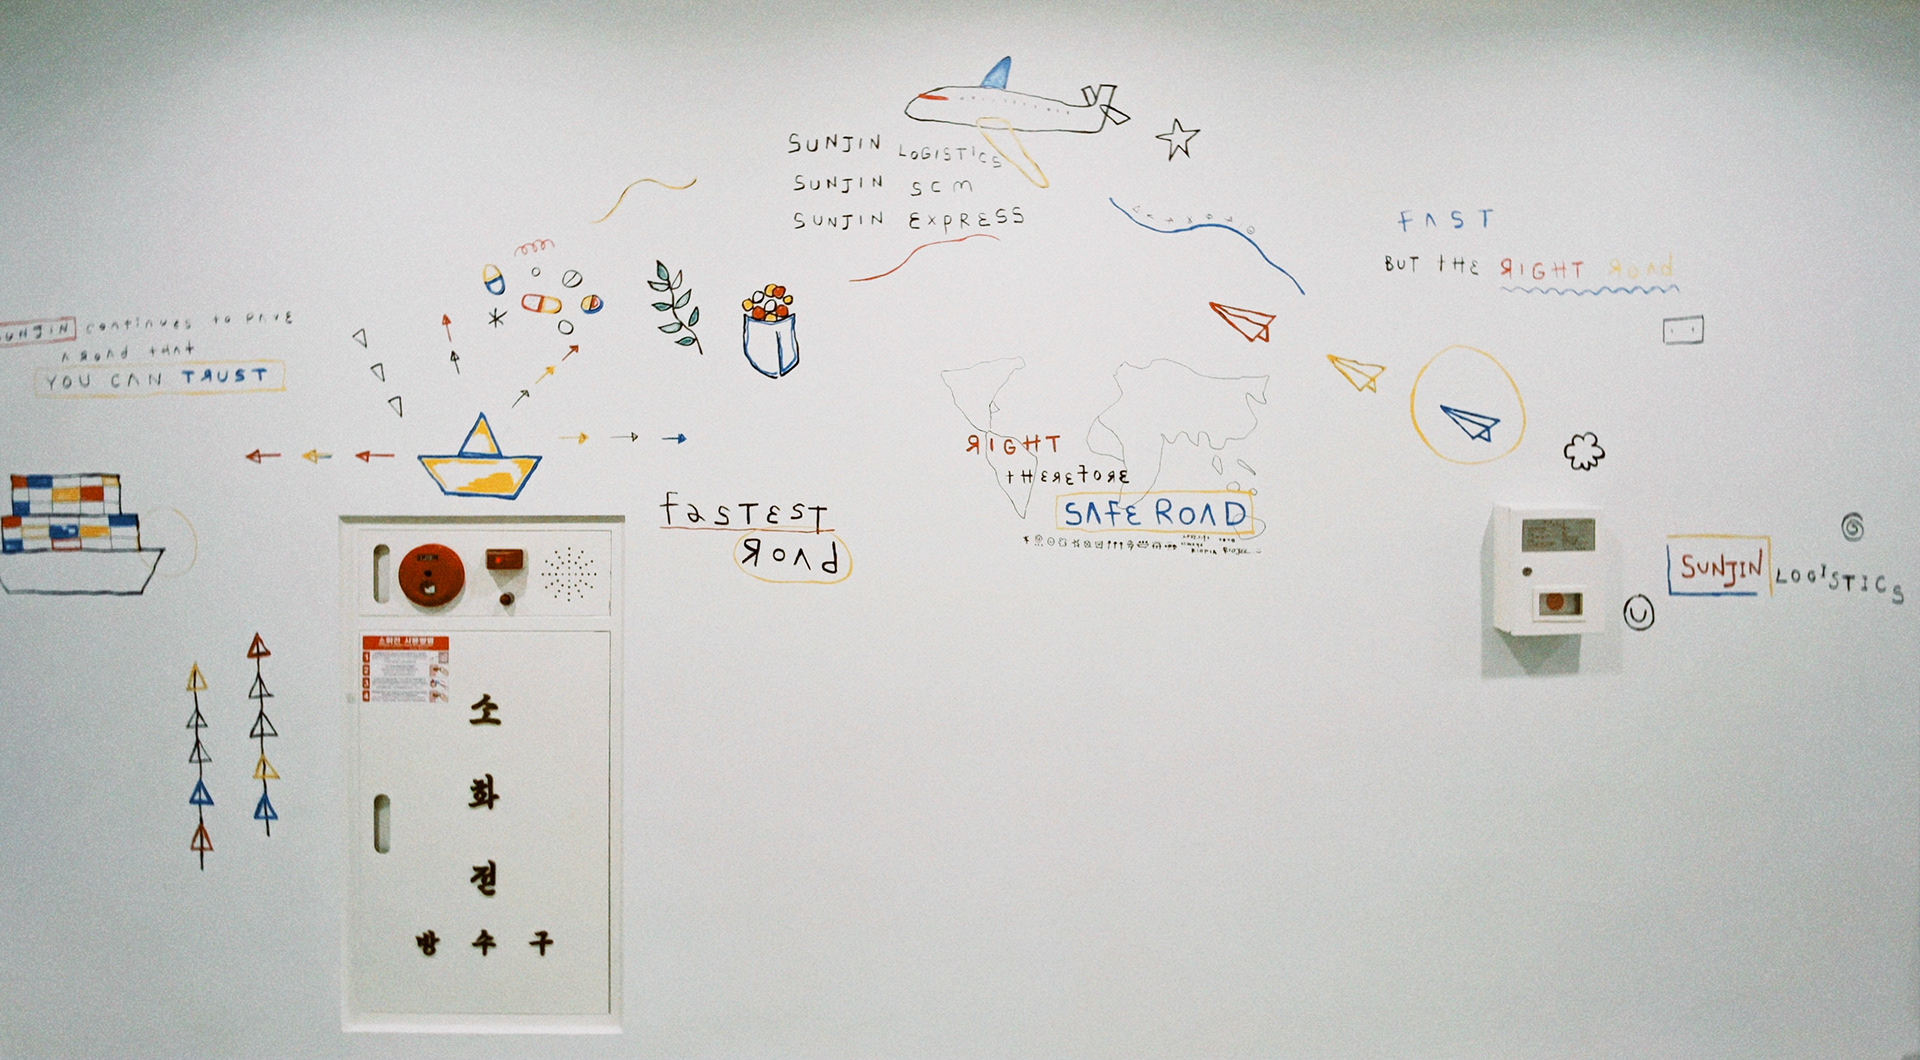 SUNJIN LOGISTICS
SUNJIN SCM
SUNJIN EXPRESS
FAST
BUT THE RIGHT ROAD
SUNJIN continues to pave
a road that
YOU CAN TRUST
RIGHT
THEREFORE
SAFE ROAD
fasTEST
ROAd
SUNJIN LOGISTICS
소화전 사용방법
1
2
3
4
소
화
전
방 수 구